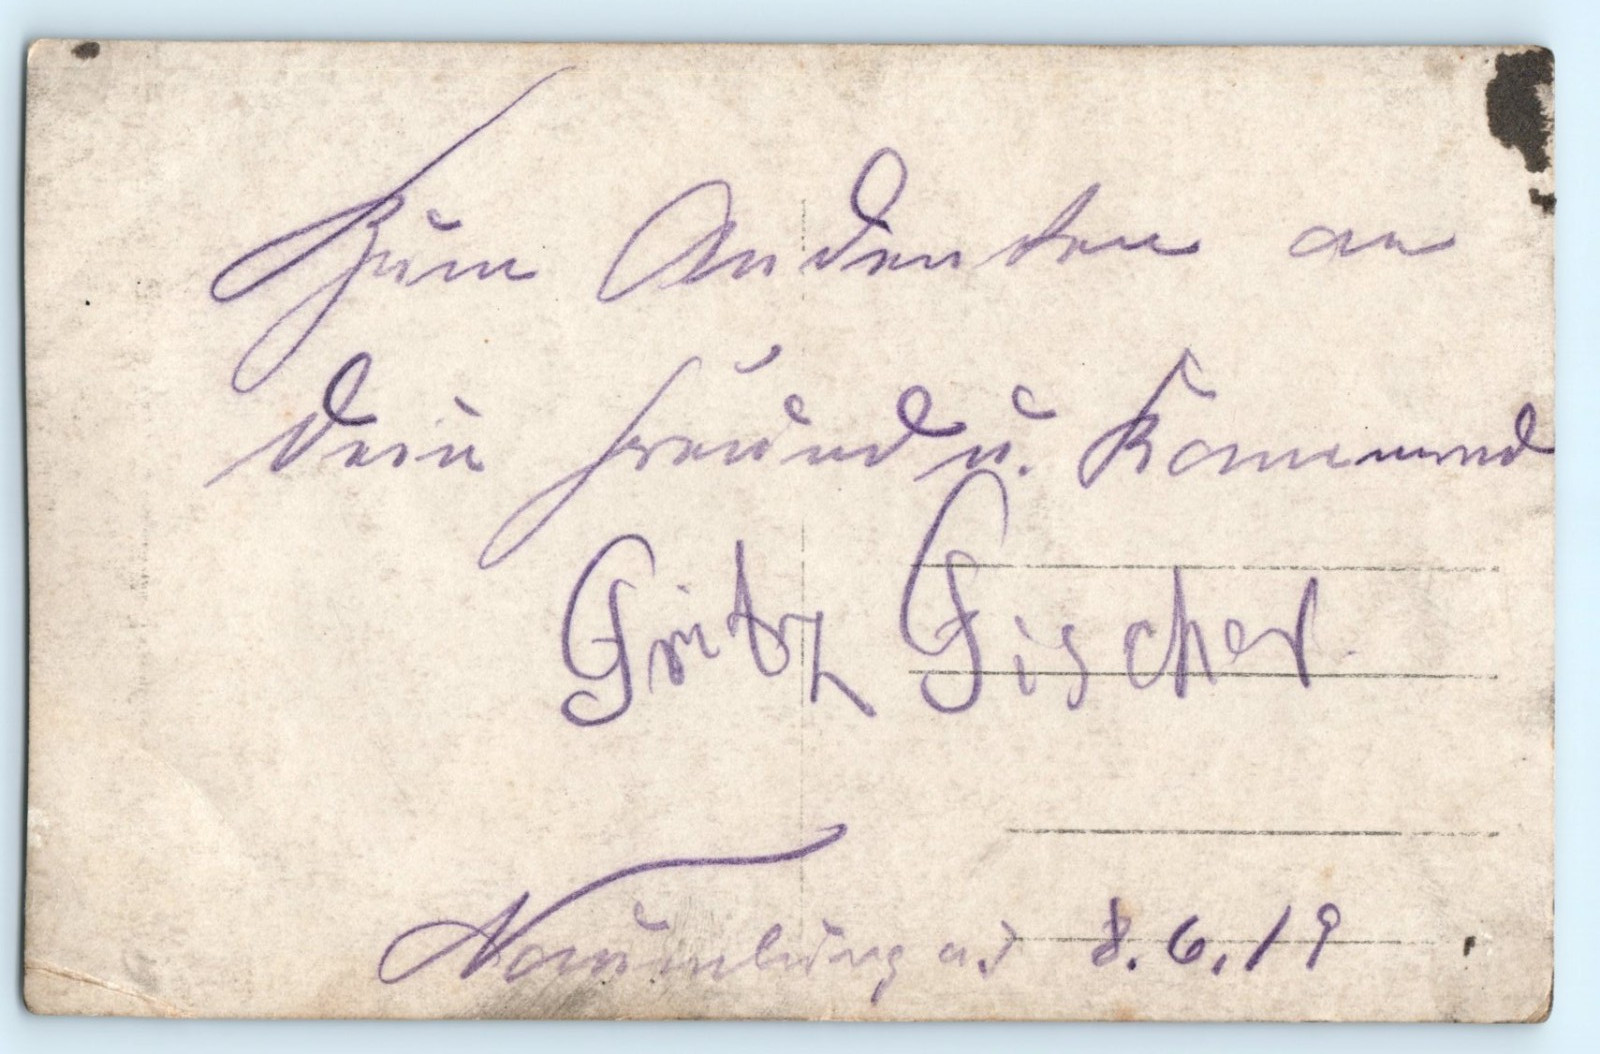 Zum Andenken an
Dein Freund u. Kammrad
Fritz Fischer.
Naumburg a. 8.6.19